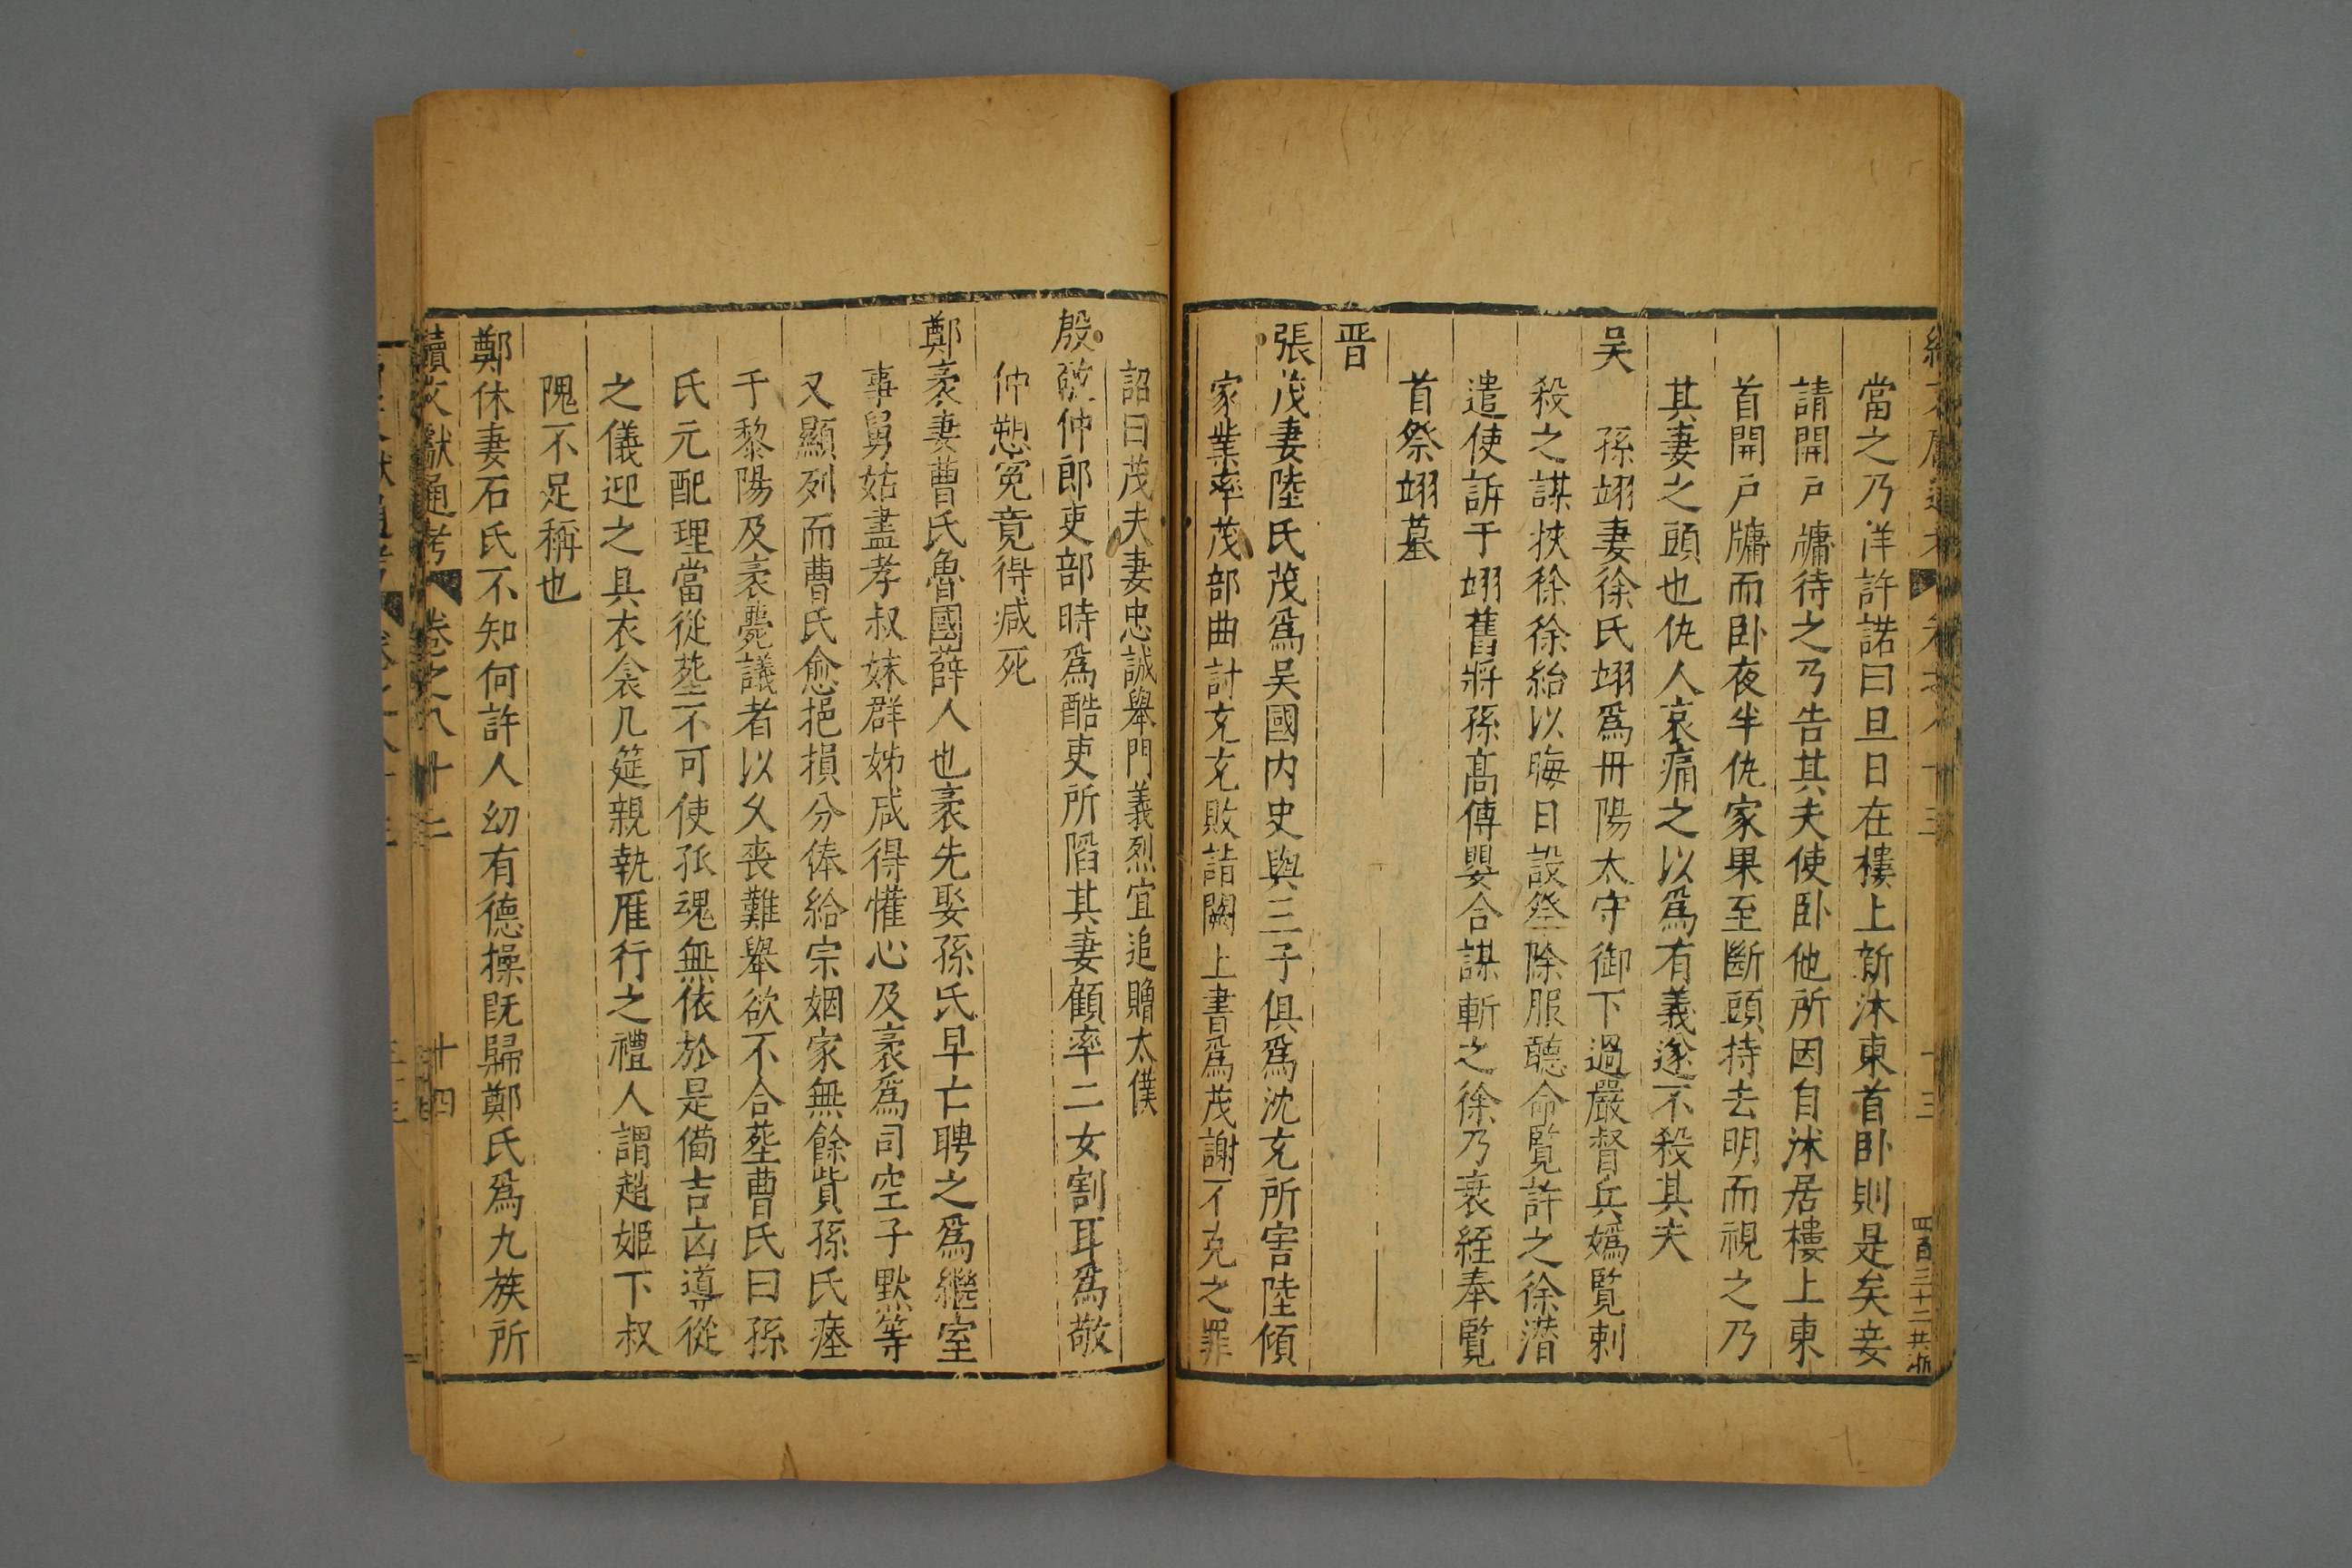 當之乃洋許諾曰旦日在樓上新沐東首臥則是矣妾
請開戶牖待之乃告其夫使臥他所因自沐居樓上東
首開戶牖而臥夜半仇家果至斷頭持去明而視之乃
其妻之頭也仇人哀痛之以爲有義遂不殺其夫
吳　孫翊妻徐氏翊爲冊陽太守御下過嚴督兵嬀覧刺
殺之謀挾徐徐紿以晦日設祭除服聽命覧許之徐潜
遣使訴于翊舊將孫高傅嬰合謀斬之徐乃衰絰奉覧
首祭翊墓
晋
張茂妻陸氏茂爲吳國内史與三子俱爲沈充所害陸傾
家業率茂部曲討充充敗詣闕上書爲茂謝不克之罪
詔曰茂夫妻忠誠舉門義烈宜追贈太僕
殷敬仲郎吏部時爲酷吏所陷其妻顧率二女割耳爲敬
仲愬寃竟得减死
鄭袤妻曹氏魯國薛人也袤先娶孫氏早亡聘之爲繼室
事舅姑盡孝叔妹群姊咸得懽心及袤爲司空子默等
又顯列而曹氏愈挹損分俸給宗姻家無餘貲孫氏瘞
于黎陽及袤薨議者以久喪難舉欲不合塟曹氏曰孫
氏元配理當從塟不可使孤魂無依於是備吉凶導從
之儀迎之具衣衾几筵親執雁行之禮人謂趙姬下叔
隗不足稱也
鄭休妻石氏不知何許人幼有德操旣歸鄭氏爲九族所
續文獻通考　卷之八十二　十四